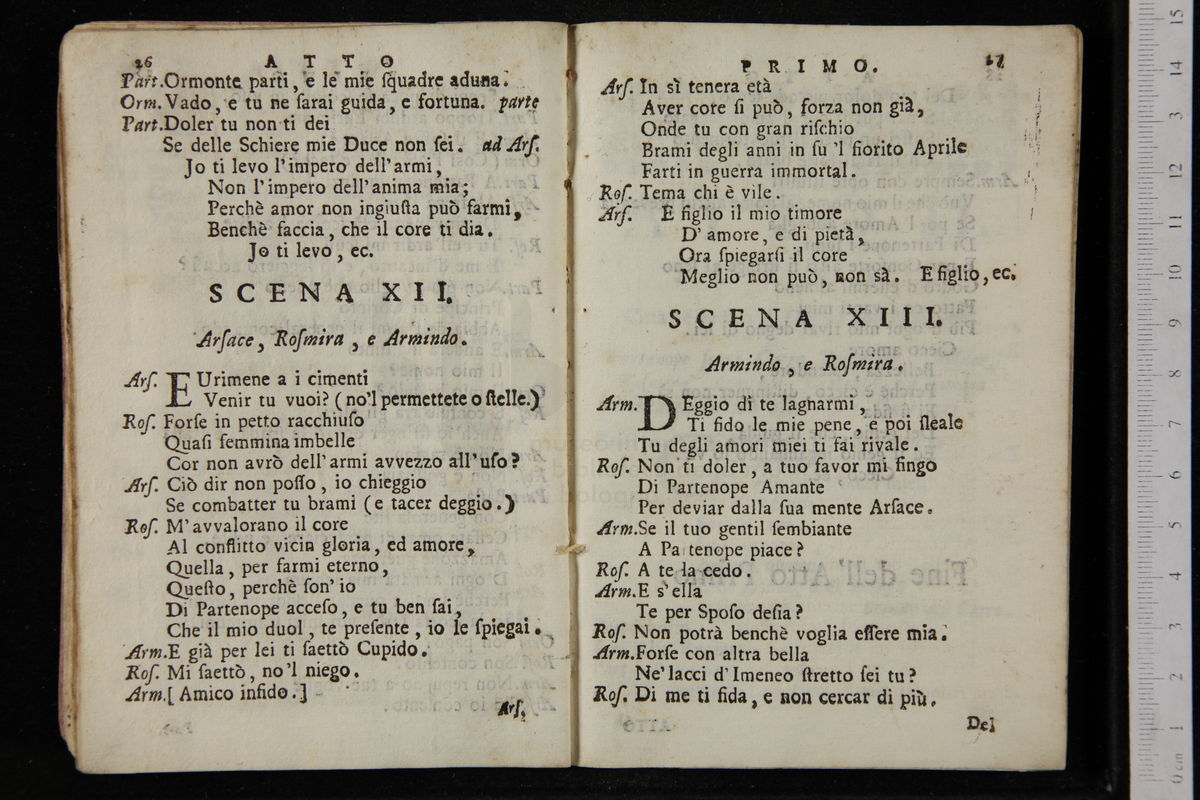 26 ATTO
Part. Ormonte parti, e le mie ſquadre aduna.
Orm. Vado, e tu ne ſarai guida, e fortuna. parte
Part. Doler tu non ti dei
Se delle Schiere mie Duce non ſei. ad Arſ.
Jo ti levo l'impero dell'armi,
Non l'impero dell'anima mia;
Perchè amor non ingiuſta può farmi,
Benchè faccia, che il core ti dia.
Jo ti levo, ec.
SCENA XII.
Arſace, Roſmira, e Armindo.
Arſ. EUrimene a i cimenti
Venir tu vuoi? (no'l permettete o ſtelle.)
Roſ. Forſe in petto racchiuſo
Quaſi femmina imbelle
Cor non avrò dell'armi avvezzo all'uſo?
Arſ. Ciò dir non poſſo, io chieggio
Se combatter tu brami (e tacer deggio.)
Roſ. M'avvalorano il core
Al conflitto vicin gloria, ed amore,
Quella, per farmi eterno,
Queſto, perchè ſon'io
Di Partenope acceſo, e tu ben ſai,
Che il mio duol, te preſente, io le ſpiegai.
Arm. E già per lei ti ſaettò Cupido.
Roſ. Mi ſaettò, no'l niego.
Arm. [Amico infido.]
Arſ.
PRIMO. 27
Arſ. In sì tenera età
Aver core ſi può, forza non già,
Onde tu con gran riſchio
Brami degli anni in ſu 'l fiorito Aprile
Farti in guerra immortal.
Roſ. Tema chi è vile.
Arſ. E figlio il mio timore
D'amore, e di pietà,
Ora ſpiegarſi il core
Meglio non può, non sà. E figlio, ec.
SCENA XIII.
Armindo, e Roſmira.
Arm. DEggio di te lagnarmi,
Ti fido le mie pene, e poi ſleale
Tu degli amori miei ti fai rivale.
Roſ. Non ti doler, a tuo favor mi fingo
Di Partenope Amante
Per deviar dalla ſua mente Arſace.
Arm. Se il tuo gentil ſembiante
A Partenope piace?
Roſ. A te la cedo.
Arm. E s'ella
Te per Spoſo deſia?
Roſ. Non potrà benchè voglia eſſere mia.
Arm. Forſe con altra bella
Ne'lacci d'Imeneo ſtretto ſei tu?
Roſ. Di me ti fida, e non cercar di più.
Del